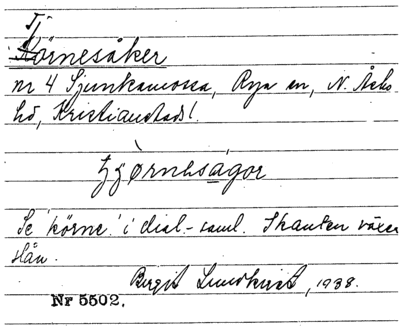 Tj
Körnesåker
nr 4 Sjunkamossa, Rya sn, N. Åsbo
hd, Kristianstads l.
tjörnesågor
Se 'körne' i dial.-saml. I kanten växer
slån.
Birgit Lundkvist, 1938.
Nr 5502.